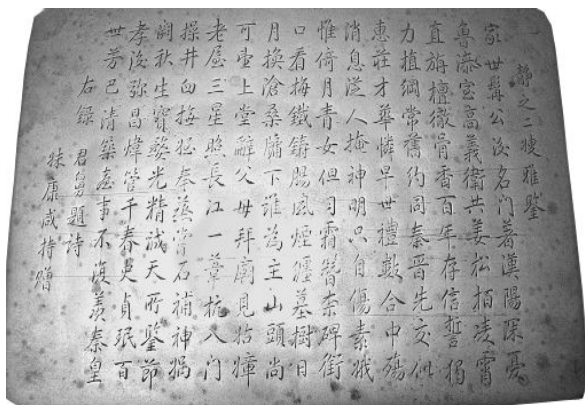 靜之二嫂雅鑒
家世髯公後名門著漢陽深憂
魯漆室高義衛共姜松柏凌霄
直旃檀徹骨香百年存信誓獨
力植綱常舊約同秦晉先交似
惠莊才華憐早世禮數合中殤
消息從人掩神明只自傷素娥
惟倚月青女但司霜簪柰碑銜
口看梅鐵鑄腸風煙僵墓樹日
月換滄桑牖下誰為主山頭尚
可望上堂辭父母拜廟見姑嫜
老屋三星照長江一葦杭入門
操井臼撫姪奉蒸嘗石補神媧
闕秋生寶婺光精誠天所鑒節
孝後彌昌煒管千春史貞珉百
世芳巴清築臺事不復羨秦皇
右錄
君舅題詩
妹康咸持贈